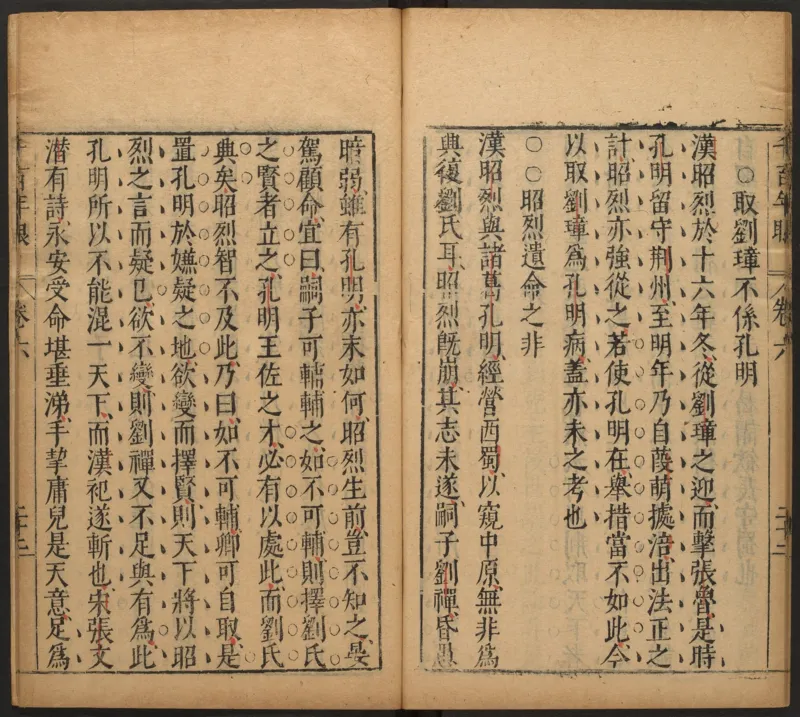 〇取劉璋不係孔明
漢昭烈於十六年冬從劉璋之迎而擊張魯是時
孔明留守荆州至明年乃自葭萌據涪出法正之
計昭烈亦強從之若使孔明在舉措當不如此今
以取劉璋爲孔明病蓋亦未之考也
〇〇昭烈遺命之非
漢昭烈與諸葛孔明經營西蜀以窺中原無非爲
興復劉氏耳昭烈旣崩其志未遂嗣子劉禪昏愚
暗弱雖有孔明亦末如何昭烈生前豈不知之晏
駕顧命宜曰嗣子可輔輔之如不可輔則擇劉氏
之賢者立之孔明王佐之才必有以處此而劉氏
典矣昭烈智不及此乃曰如不可輔卿可自取是
置孔明於嫌疑之地欲變而擇賢則天下將以昭
烈之言而疑已欲不變則劉禪又不足與有爲此
孔明所以不能混一天下而漢祀遂斬也宋張文
潜有詩永安受命堪垂涕手挈庸兒是天意足爲
千百年眼
卷六
二十三